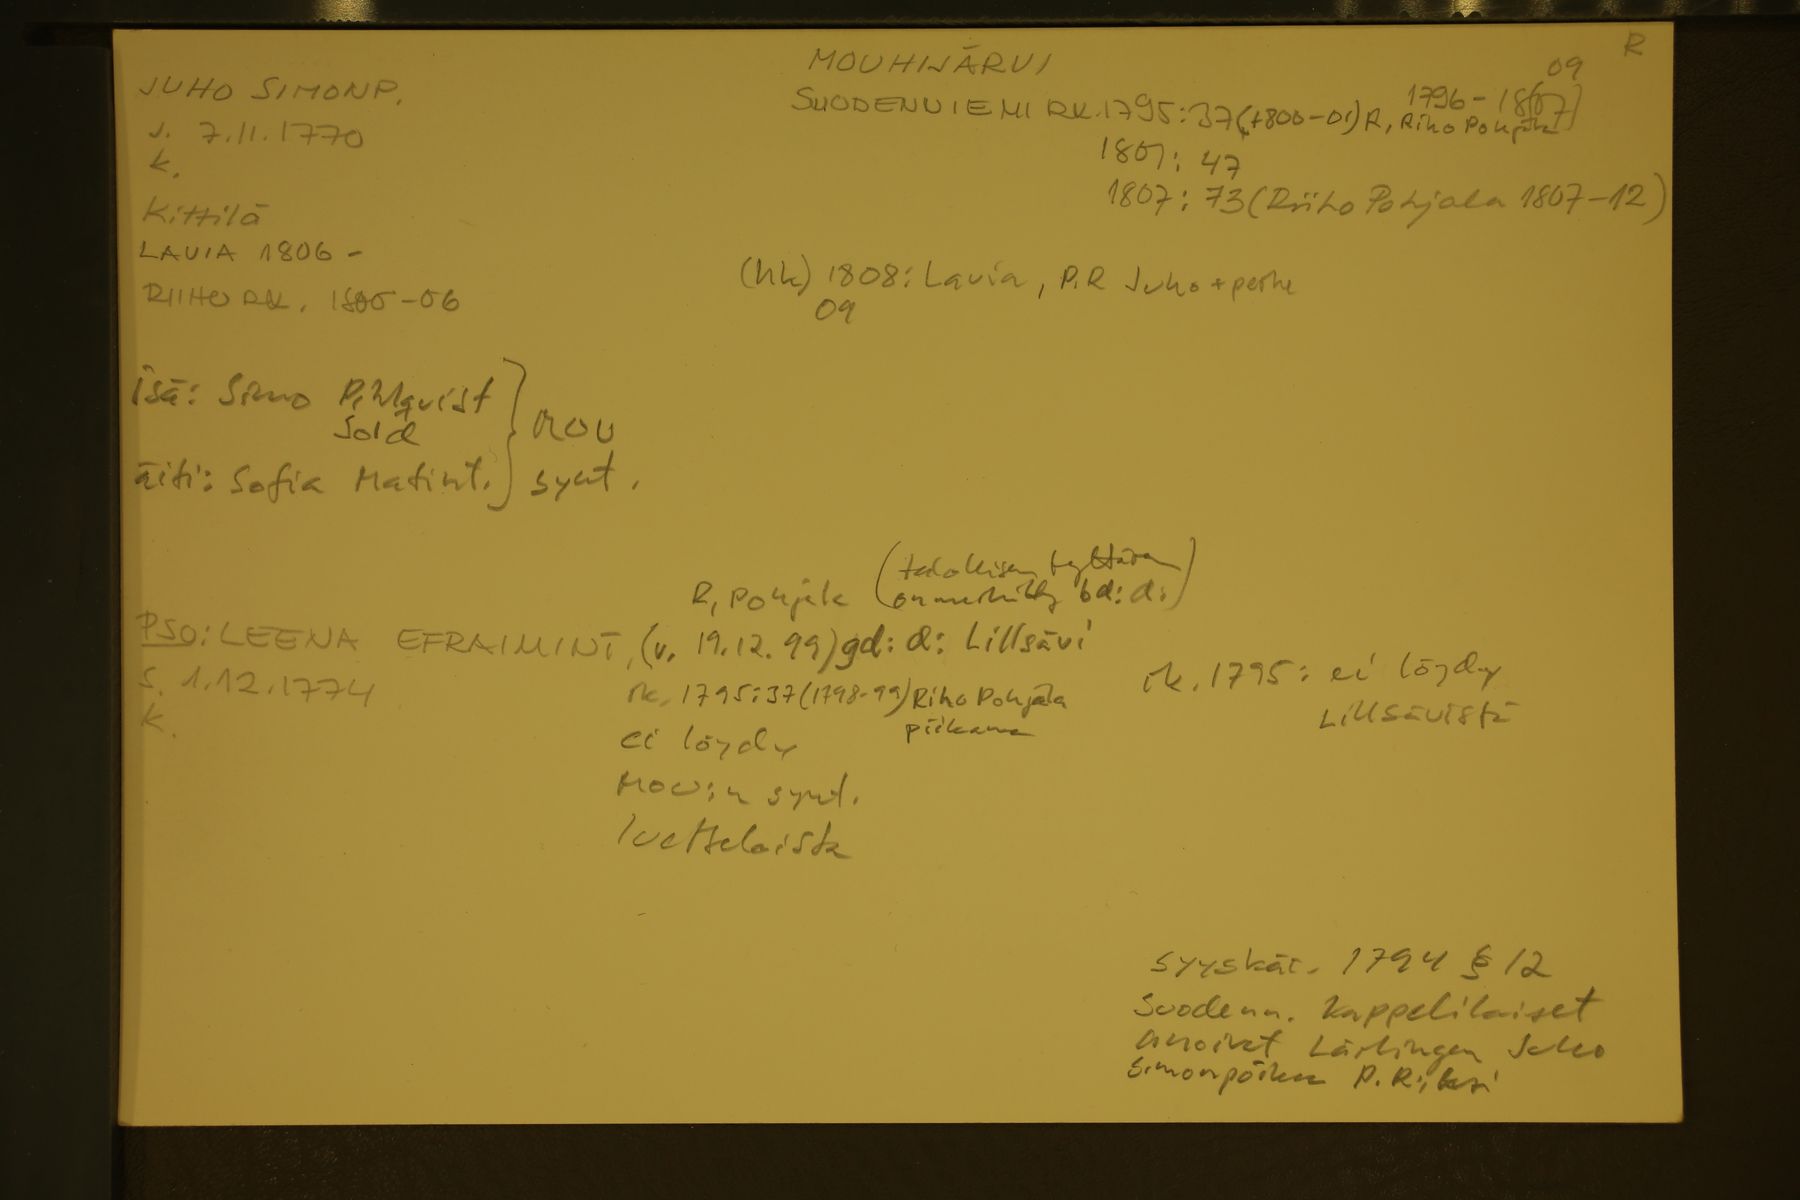 R
MOUHIJÄRVI
09
JUHO SIMONP.
s. 7.11.1770
k.
Kittilä
LAVIA 1806 -
RIIHO RK. 1805-06
SUODENNIEMI RK. 1795: 37 (1800-01) R, Riho Pohjala
1796-1807
1801: 47
1807: 73 (Riiho Pohjala 1807-12)
(hk) 1808: Lavia, P.R Juho + perhe
09
isä: Simo Pihlqvist
Sold
äiti: Sofia Matint.
MOU
synt.
R, Pohjala (talollisen tyttären
on merkitty bd: d:)
PSO: LEENA EFRAIMINT, (v. 19.12.99) gd: d: Lillsävi
s. 1.12.1774
k.
rk. 1795: 37 (1798-99) Riho Pohjala
piikana
ei löydy
MOU:n synt.
luetteloista
rk. 1795: ei löydy
Lillsävistä
syyskär. 1794 § 12
Suodenn. kappelilaiset
anoivat Lärlingen Juho
Simonpoikaa P.R:iksi